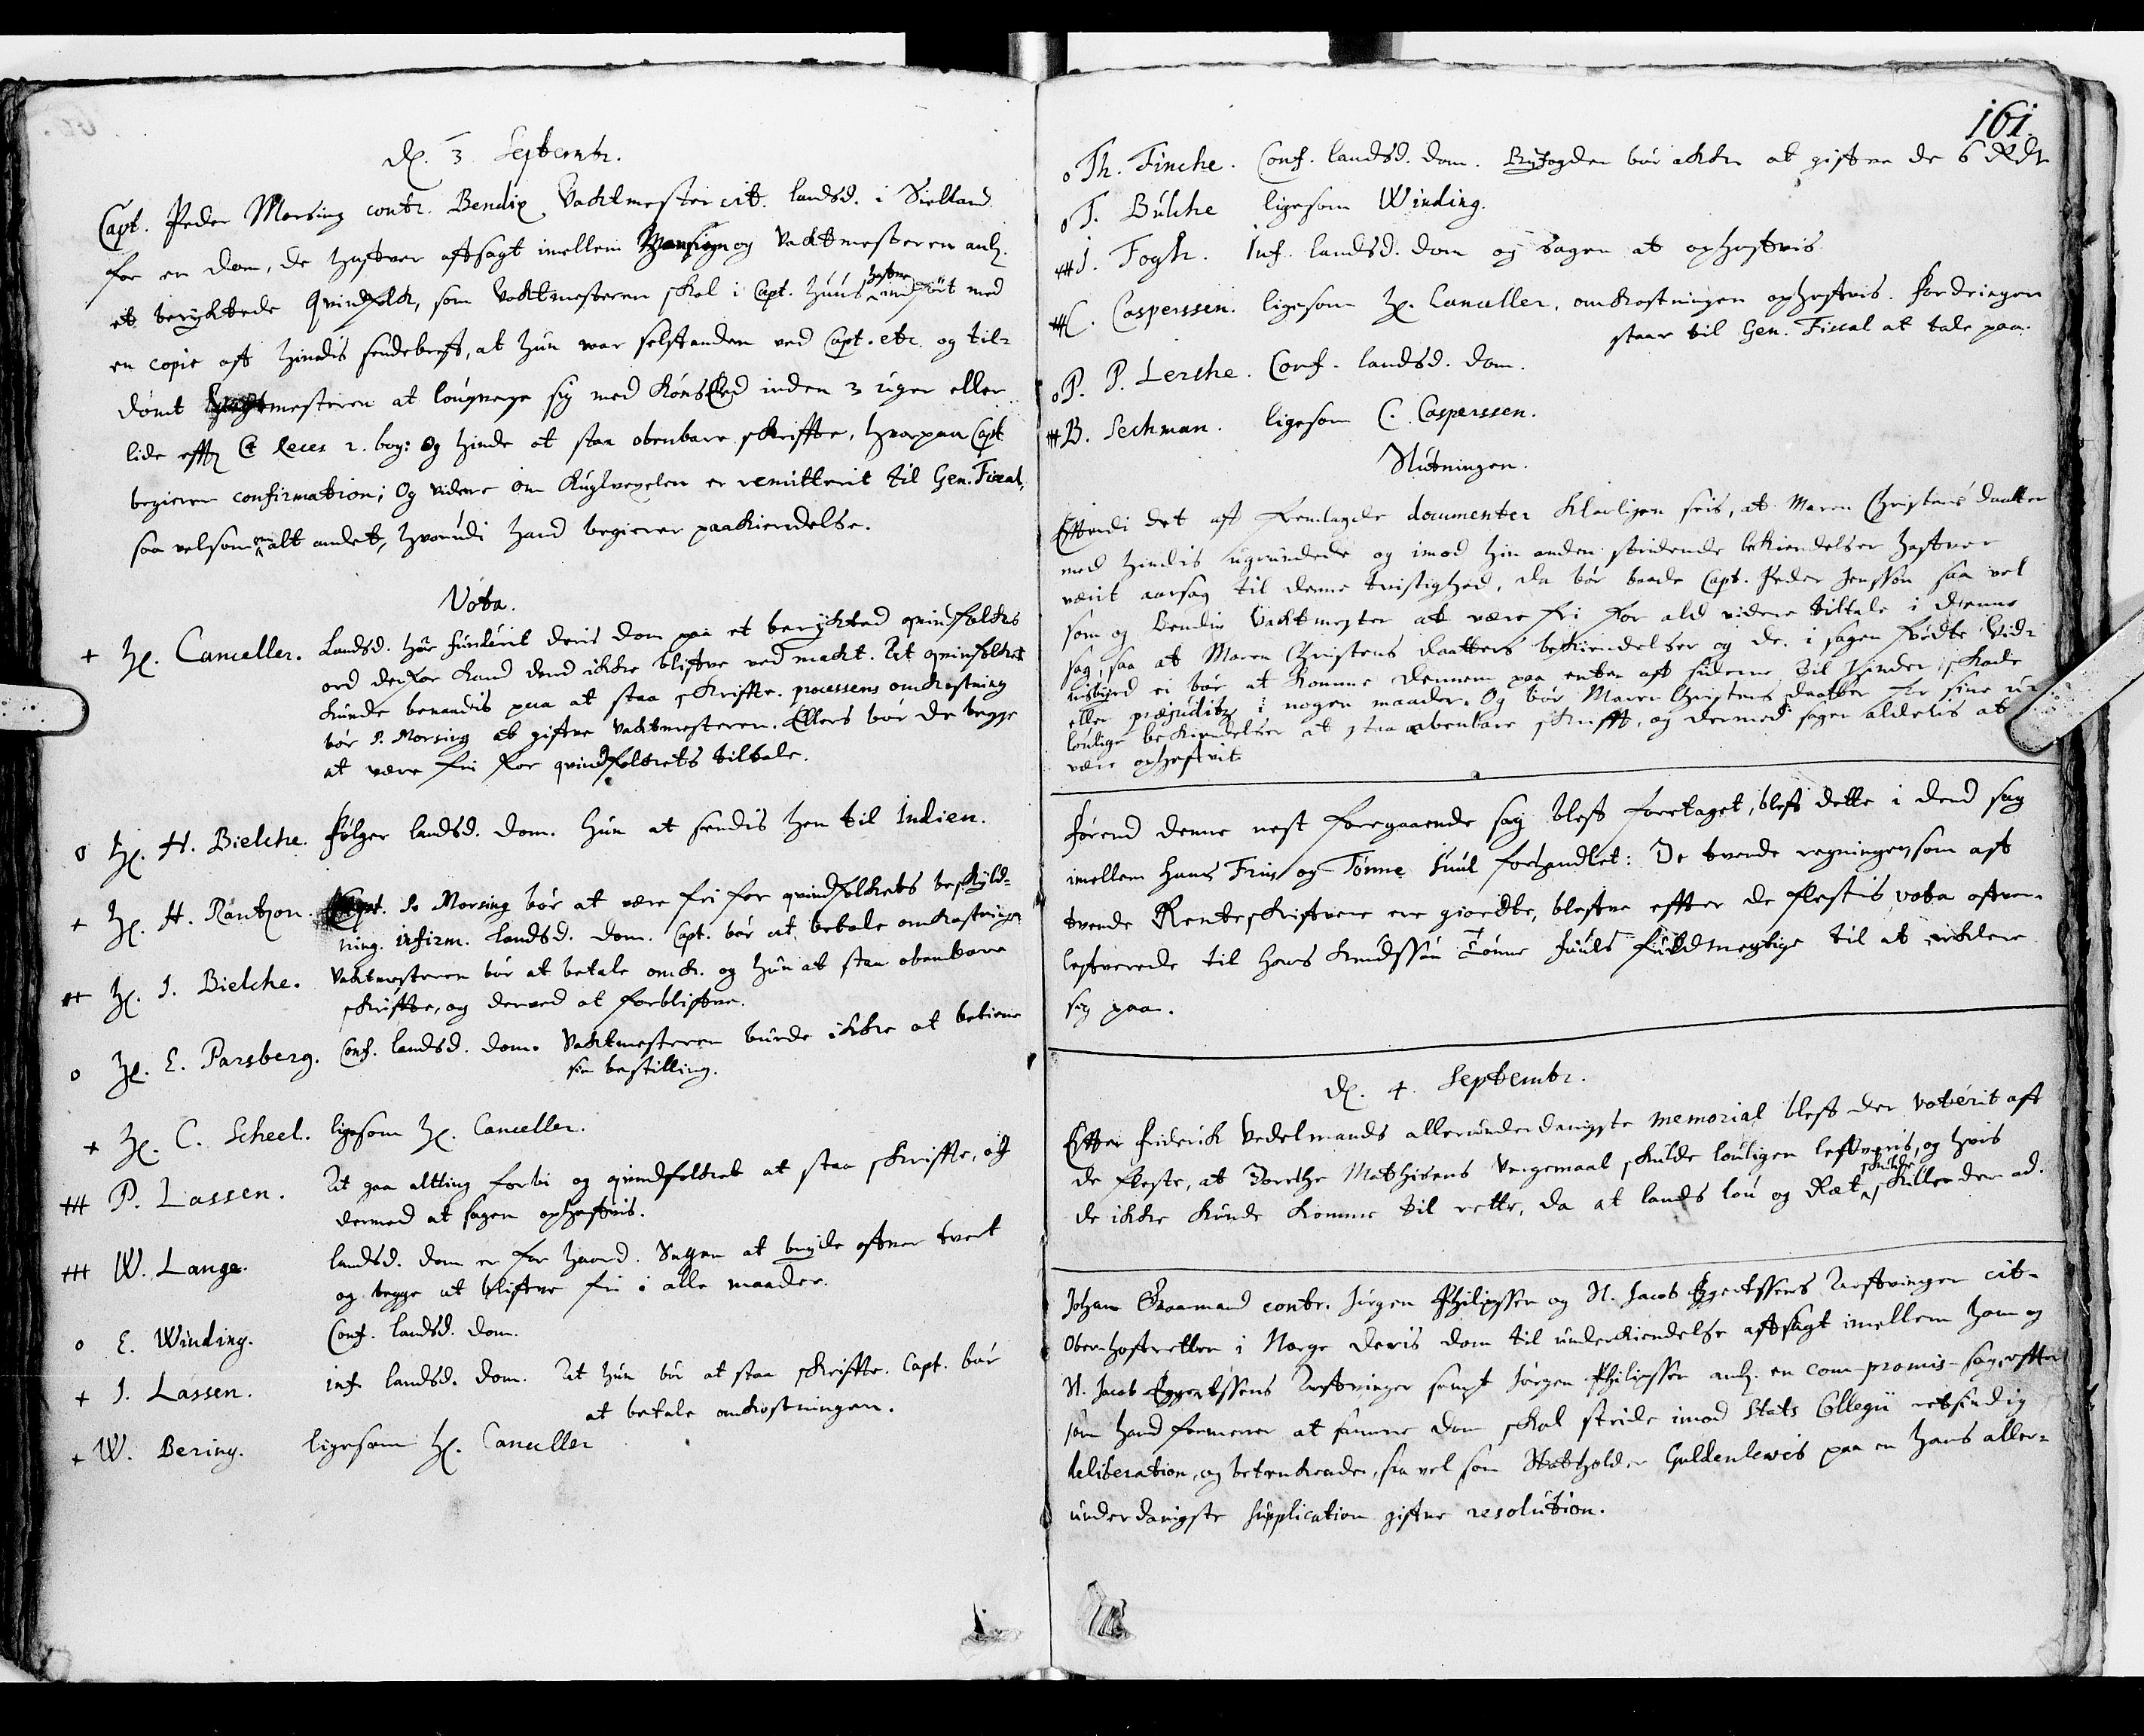 d. 3 Septembr.
Capt. Peder Morsing contr. Bendix Vaktmester cit. landsd. i Sielland
for en dom, de hafver afsagt imellem Morsing og Vaktmesteren anl.
et beryktede Qvindfolk, som Vaktmesteren skal i Capt. huus hafve indført med
en copie aff hindis sendebreff, at hun war besofvanden ved Capt. etc. og til-
dømt Vagtmesteren at lougverge sig med Køns Eed inden 3 uger eller
lide efft. Reces 2. bog: og hinde at staa obenbare skriffte, hvorpaa Capt
begierer confirmation; Og videre om Kuglvexelen er remitterit til Gen. Fiscal,
saa velsom om alt andet, hvorudi hand begierer paakiendelse.
Vota.
+ H. Canceller. Landsd. har funderit deris dom paa et berykted qvindfolkes
ord derfor kand dend ikke blifve ved makt. At qvinfolket
kunde benaadis paa at staa skriffte. processens omkostning
bør P. Morsing at gifve Vaktmesteren. Ellers bør de begge
at være fri for qvindfolkets tiltale.
o H. H. Bielche. følger landsd. dom. hun at sendis hen til Indien.
+ H. H. Rantzon. Capt. P. Morsing bør at være fri for qvindfolkets beskyld-
ning. infirm. landsd. dom. Capt. bør at betale omkostningen
++ H. J. Bielche. Vaktmesteren bør at betale omk. og hun at staa obenbare
skriffte, og derved at forblifve.
o H. E. Parsberg. Conf. landsd. dom. Vaktmesteren burde ikke at betiene
sin bestilling.
+ H. C. Scheel. ligesom H. Canceller.
+++ P. Lassen. At gaa alting forbi og qvindfolket at staa skriffte, og
dermed at sagen ophefvis.
+++ W. Lange. landsd. dom er for haard. Sagen at bryde ofver tvert
og begge at blifve fri i alle maader.
o E. Winding. Conf. landsd. dom.
+ J. Lassen. inf. landsd. dom. At hun bør at staa skriffte. Capt. bør
at betale omkostningen.
+ W. Bering. ligesom H. Canceller
161.
o Th. Finche. Conf. landsd. dom. Byfogden bør ikke at gifve de 6 Rdr
o T. Bülche ligesom Winding.
+++ J. Fogh. Inf. landsd. dom og sagen at ophefvis
+++ C. Casperssen. ligesom H. Canceller, omkostningen ophefvis. fordringen
staar til Gen. Fiscal at tale paa.
o P. P. Lerche. Conf. landsd. dom.
+++ B. Lechman. ligesom C. Casperssen.
Slutningen.
Efterdi det aff fremlagde documenter klarligen seis, at Maren Christens daatter
med hindis ugrundede og imod hin anden stridende bekiendelser hafver
værit aarsag til denne tvistighed, da bør baade Capt. Peder Jenssøn saa vel
som og Bendix Vaktmester at være fri for ald videre tiltale i denne
sag, saa at Maren Christens daatters bekiendelser og de i sagen førdte Vid-
nisbyrd ei bør at komme dennem paa enten aff siderne til hinder, skade
eller præjuditz i nogen maader. Og bør Maren Christens daatter for sine u-
loulige bekiendelser at staa obenbare skrifft, og dermed sagen aldelis at
være ophefvit
førend denne nest foregaaende sag bleff foretaget, bleff dette i dend sag
imellem Hans Friis og Tønne Juul forhandlet: De tvende regninger, som aff
tvende Renteskrifvere ere giordte, blefve effter de flestis vota ofver-
lefverede til Hans Knudssøn Tønne Juuls fuldmegtige til at erklere
sig paa.
d. 4. Septembr.
Effter Friderick Vedelmands allerunderdanigste memorial bleff der voterit aff
de fleste, at Dorethe Mathisens Vergemaal skulde louligen lefveris, og hvis
de ikke kunde komme til rette, da at lands lou og Ræt skulde skille dem ad.
Johan Graamand contr. Jørgen Philipssen og Sl. Jacob Eggertssens Arfvinger cit.
Oberhofretten i Norge deris dom til underkiendelse afsagt imellem ham og
Sl. Jacob Eggertssens Arfvinger sampt Jørgen Philipssen anl. en compromis-sag, effter
som hand formener at samme dom skal stride imod Stats Collegii retsindig
deliberation, og betenkende, saa vel som Statholder Guldenlewis paa en hans aller-
underdanigste supplication gifne resolution.